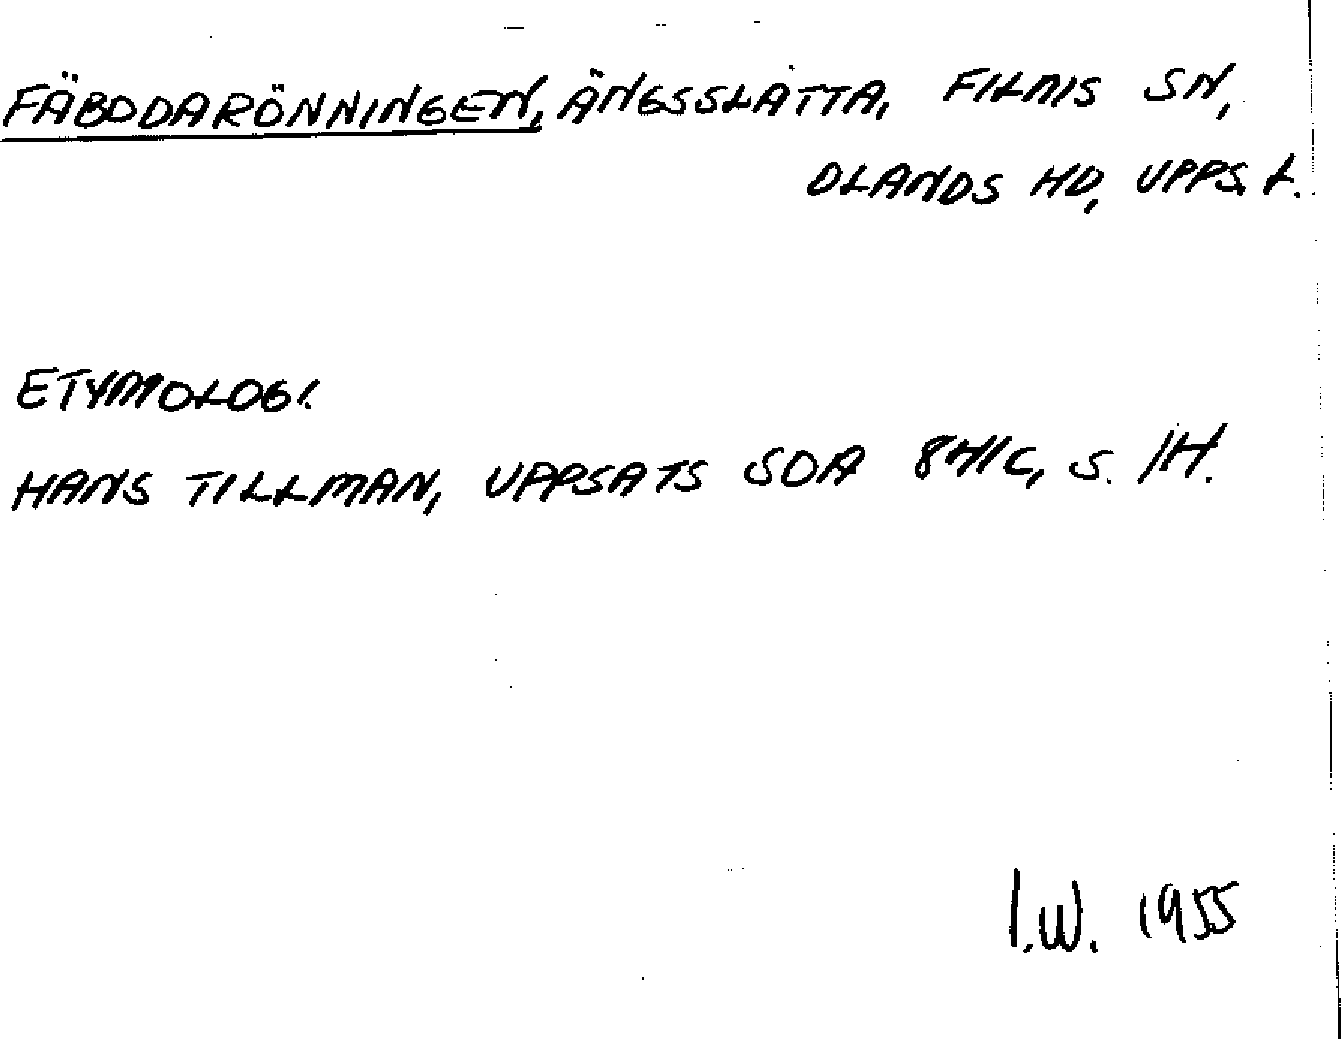 FÄBODARÖNNINGEN, ÄNGSSLÅTTA, FILMS SN,
OLANDS HD, UPPS. L.
ETYMOLOGI.
HANS TILLMAN, UPPSATS SOA 841C, S. 14.
I.W. 1955